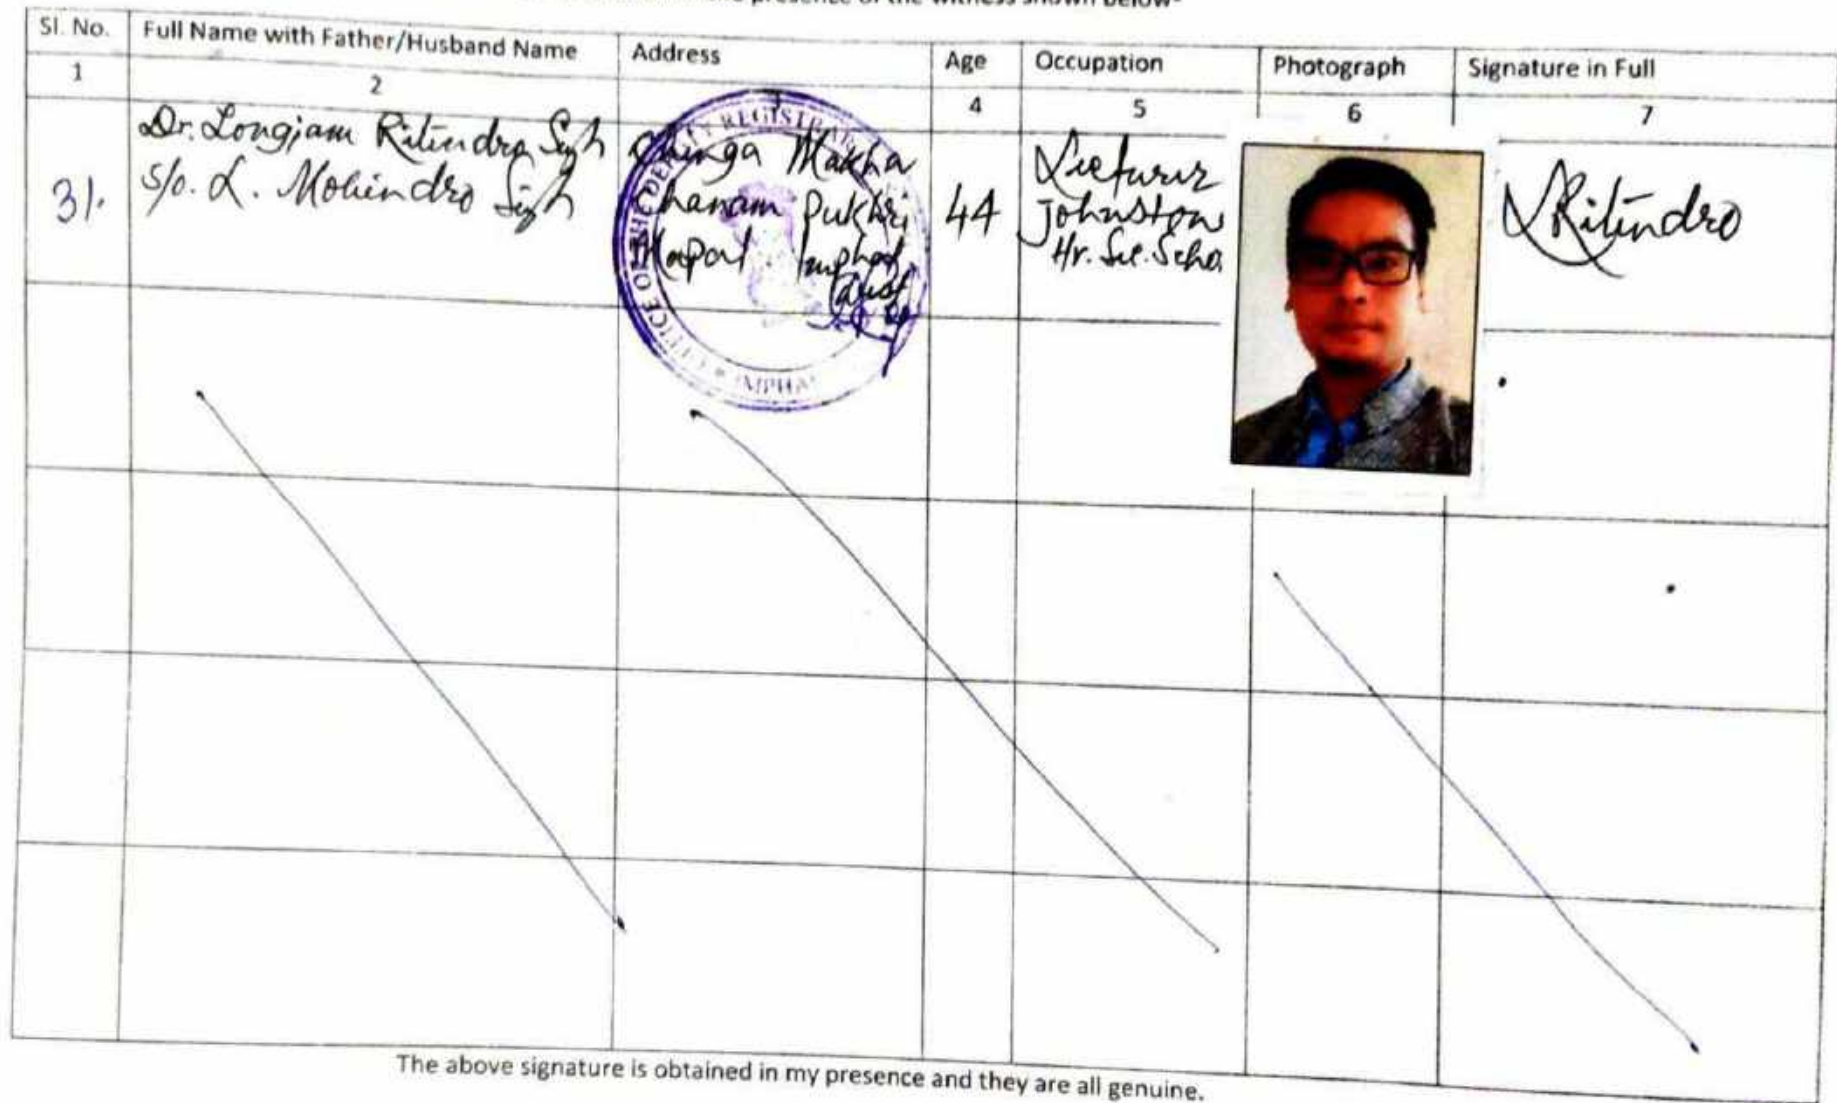 presence of the witness shown below-
Sl. No. Full Name with Father/Husband Name Address Age Occupation Photograph Signature in Full
1 2 3 4 5 6 7
31. Dr. Longjam Ritindra Singh
S/o. L. Mohindro Singh
Chinga Makha
Chanam Pukhri
Mapal Imphal
44
Lecturer
Johnstone
Hr. Sec. Scho
LRitindro
OFFICE OF THE DEPUTY REGISTRAR
IMPHAL
The above signature is obtained in my presence and they are all genuine.